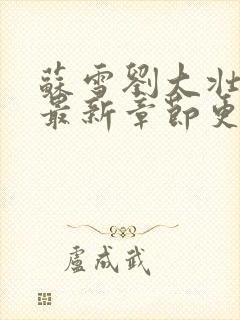 蘇雪劉大壯
最新章節更
盧成武